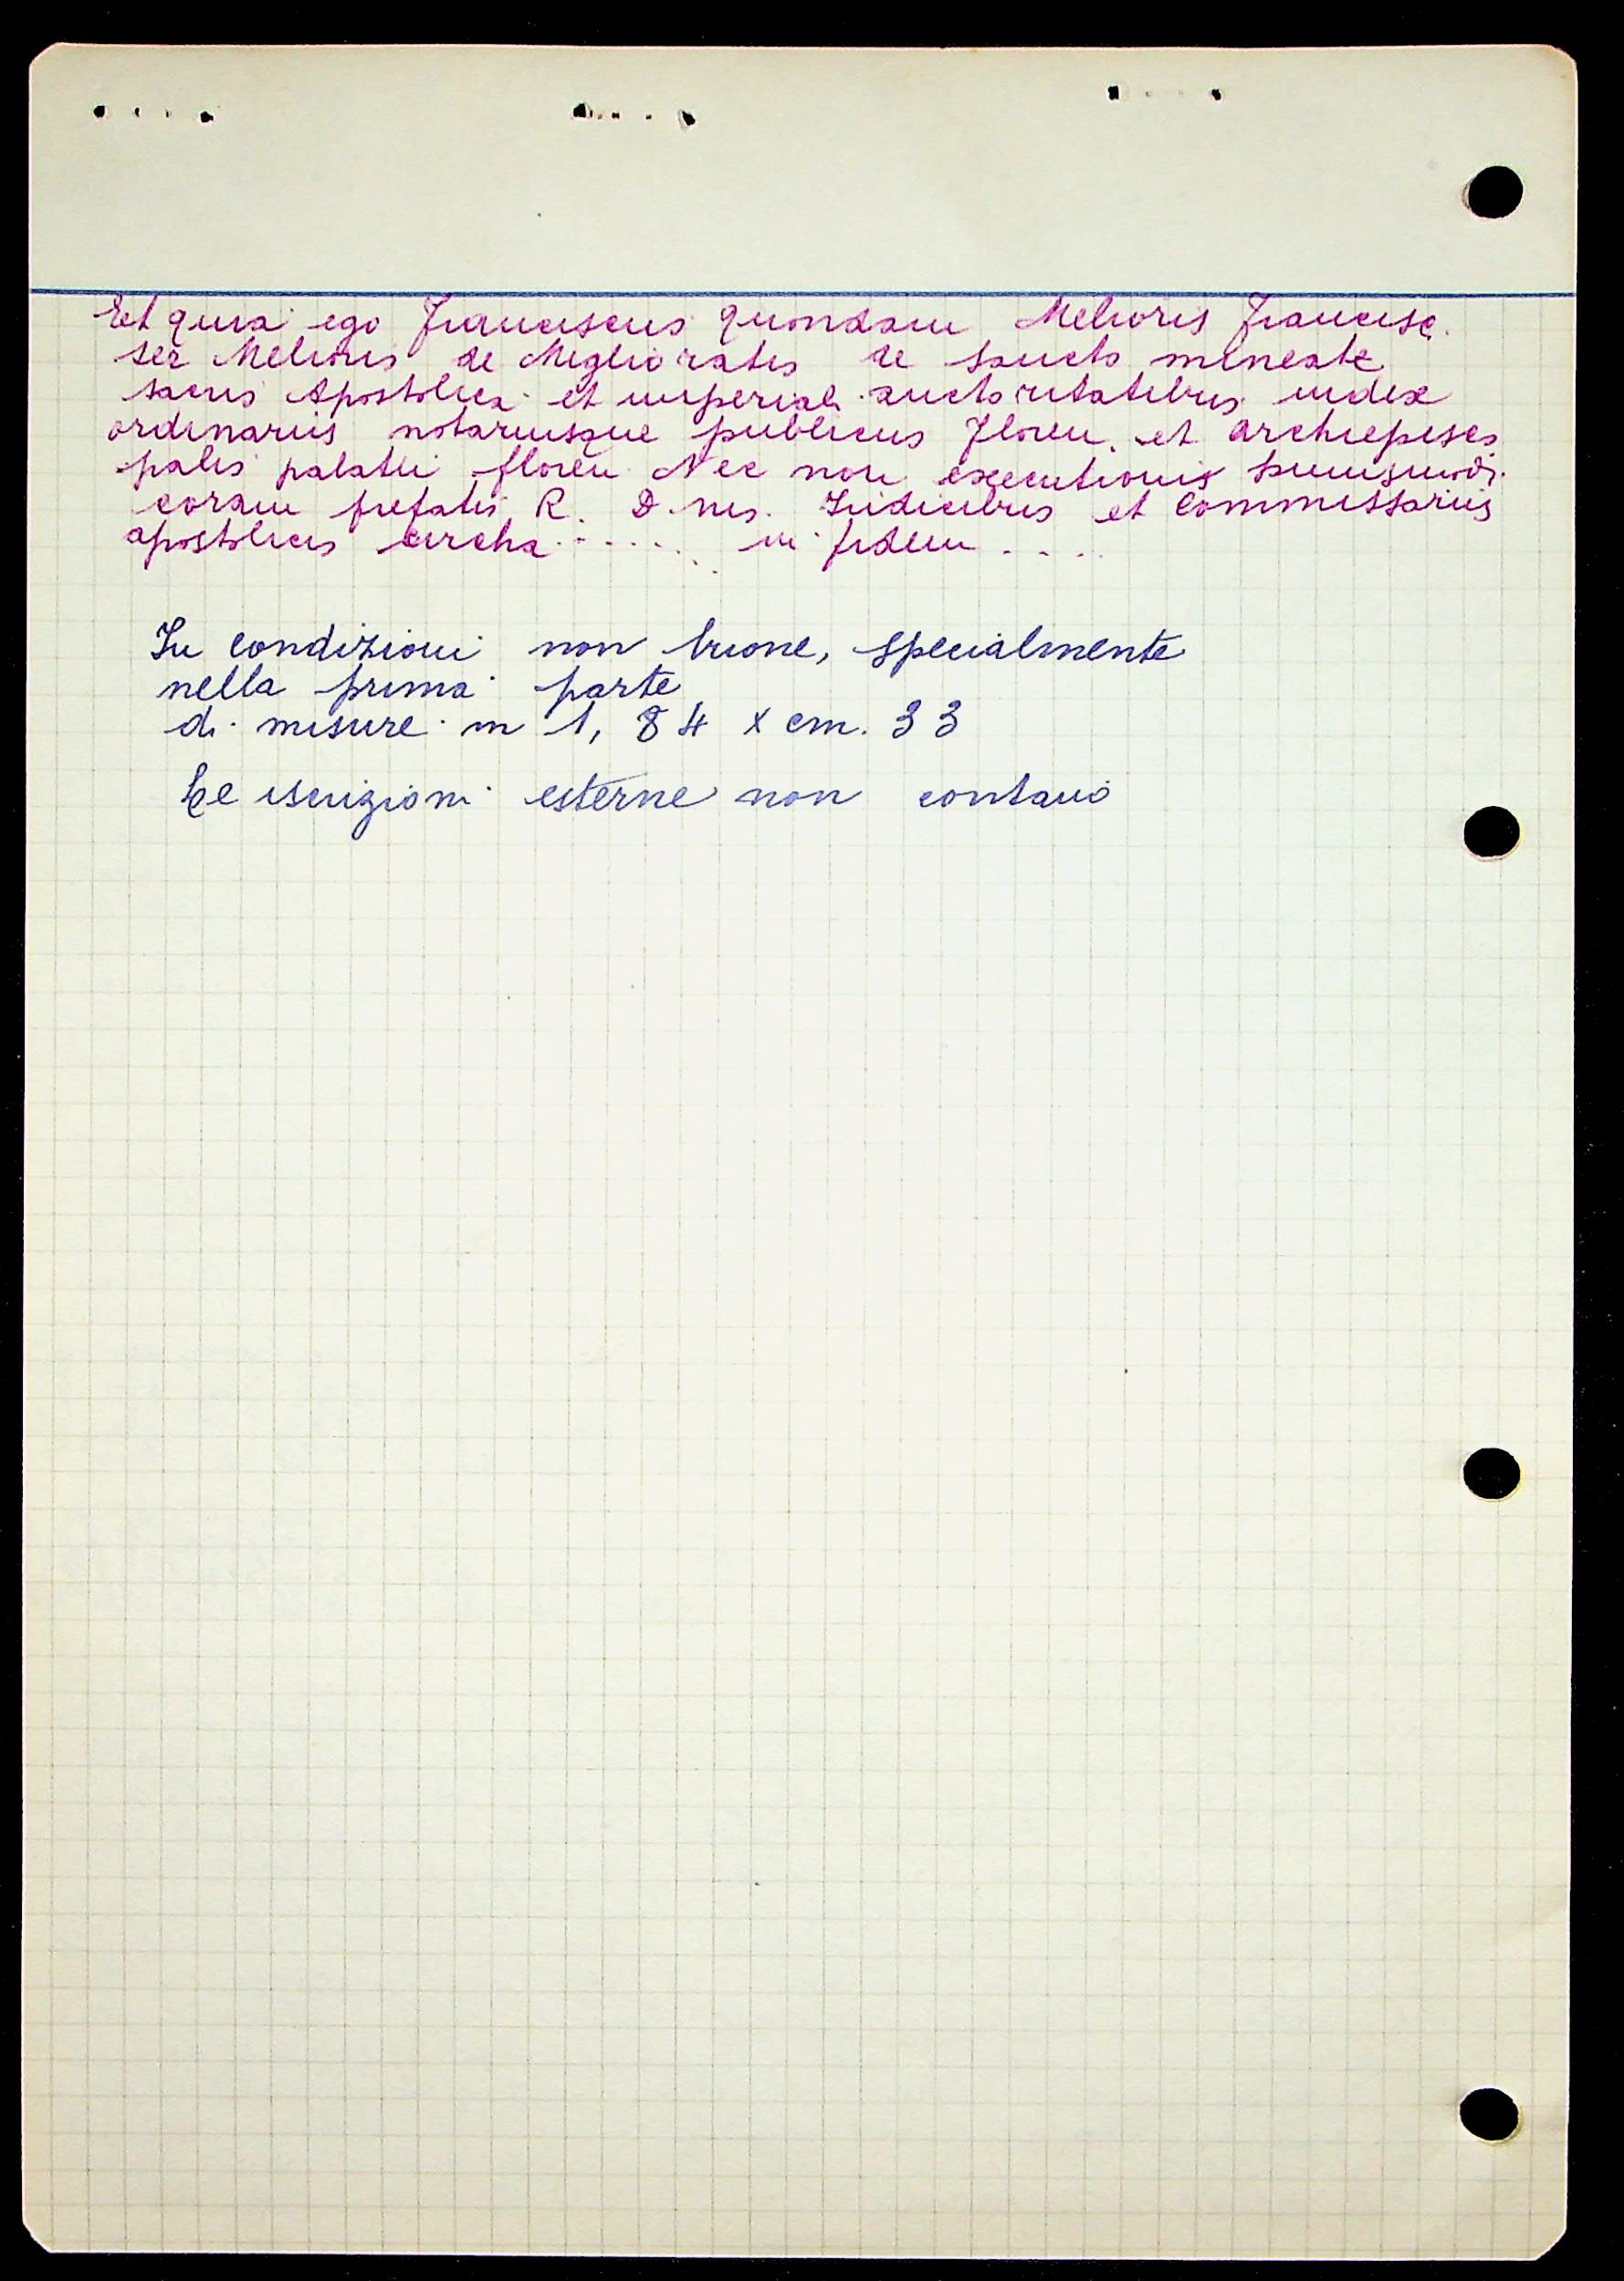 Et quia ego Franciscus quondam Melioris Francisc.
ser Melioris de Miglioratis de Sancto mineate
sacris Apostolica et imperiali auctoritatibus iudex
ordinarius notariusque publicus Floren. et archiepisco
palis palatii floren Nec non executionis
coram prefatis R. D. nis. Iudicibus et Commissariis
apostolicis circha ...... in fidem ....
In condizioni non buone, specialmente
nella prima parte
di misure m 1,84 x cm. 33
Le iscrizioni esterne non contano